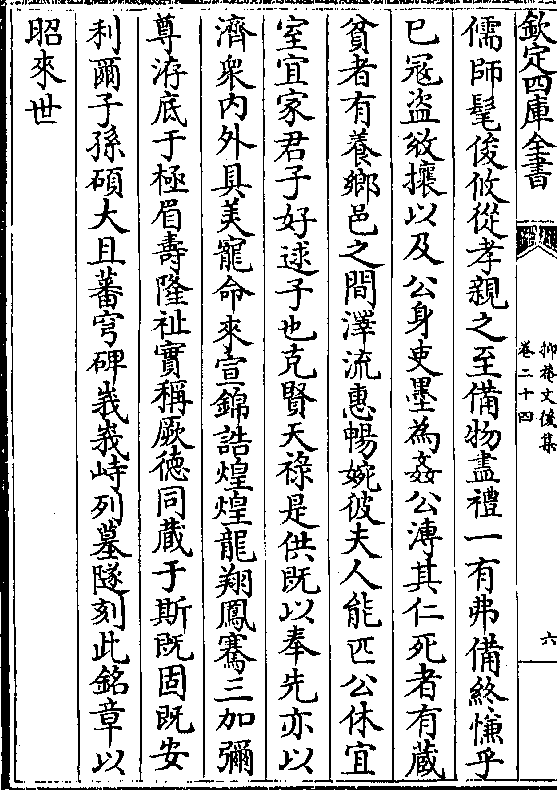 欽定四庫全書
抑菴文後集
卷二十四
六
儒師髦俊攸從孝親之至備物盡禮一有弗備終慊乎
已冦盗攘攘以及公身吏墨為姦公溥其仁死者有藏
貧者有養鄉邑之間澤流惠暢婉彼夫人能匹公休宜
室宜家君子好逑子也克賢天祿是供既以奉先亦以
濟衆内外具美寵命來宣錦誥煌煌龍翔鳳騫三加彌
尊洊底于極眉壽隆祉實稱厥徳同藏于斯既固既安
利爾子孫碩大且蕃穹碑峩峩峙列墓隧刻此銘章以
昭來世